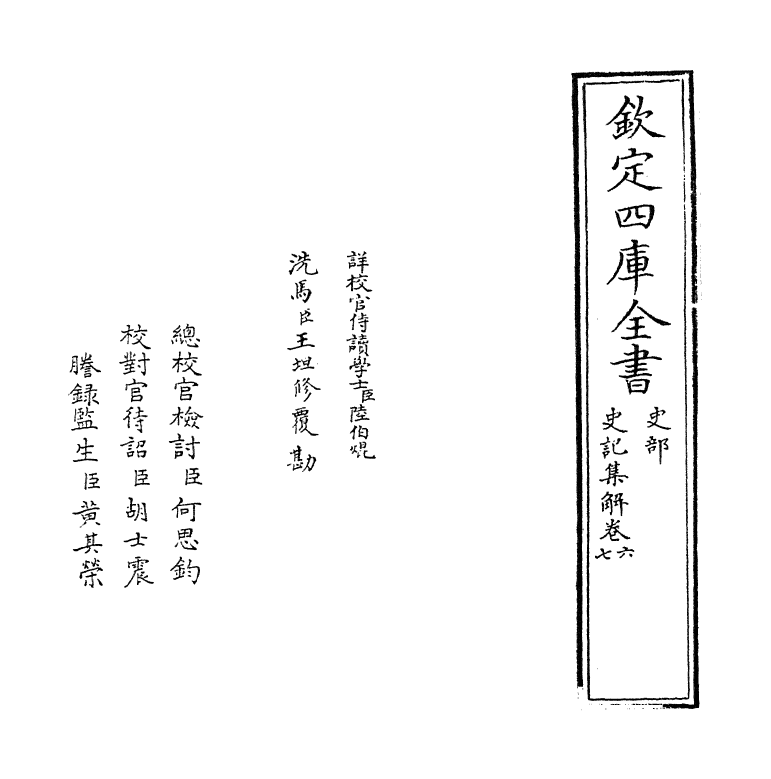 欽定四庫全書
史部
史記集解卷六七
詳校官侍讀學士臣陸伯焜
洗馬臣王坦修覆勘
總校官檢討臣何思鈞
校對官待詔臣胡士震
謄錄監生臣黃其榮